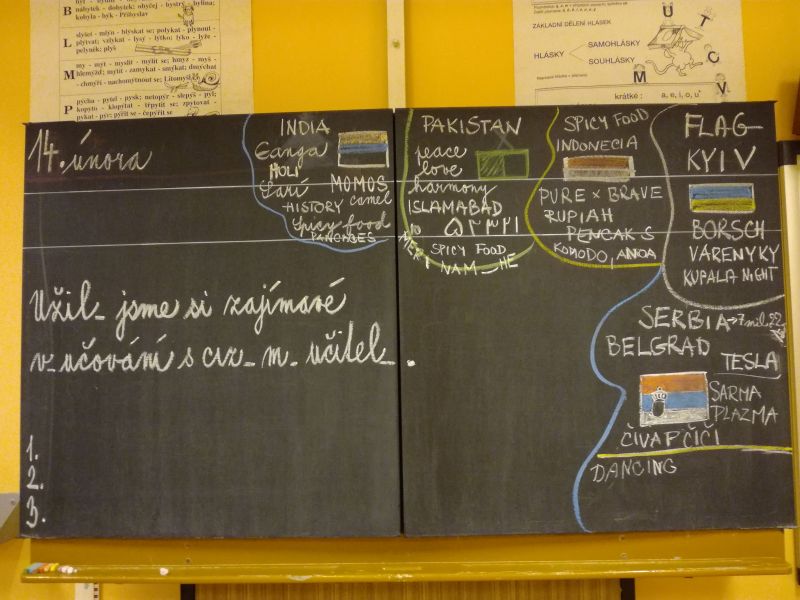 nábytek - dobytek; obyčej; bystrý; bylina;
kobyla; býk - Přibyslav
L
slyšet - mlýn - blýskat se; polykat - plynout -
plýtvat; vzlykat - lysý - lýtko; lýko - lyže -
pelyněk; plyš
M
my - mýt - myslit - mýlit se; hmyz - myš
- hlemýžď; mýtit - zamykat - smýkat; dmýchat
- chmýří - nachomýtnout se; Litomyšl
P
pýcha - pytel - pysk; netopýr - slepýš - pyl;
kopyto - klopýtat - třpytit se; zpytovat -
pykat - pýr; pýřit se - čepýřit se
ZÁKLADNÍ DĚLENÍ HLÁSEK
HLÁSKY
SAMOHLÁSKY
SOUHLÁSKY
Ü T C V M
krátké : a, e, i, o, u
14. února
INDIA
Ganga
HOLI
Sarí
MOMOS
HISTORY camel
Spicy food
PANCAGES
PAKISTAN
peace
love
harmony
ISLAMABAD
۵ ۳ ۳ ۲ ۱
SPICY FOOD
MERA NAM HE
SPICY FOOD
INDONECIA
PURE × BRAVE
RUPIAH
PENCAK S
KOMODO, ANOA
FLAG
KYIV
BORSCH
VARENYKY
KUPALA NIGHT
SERBIA → 7 mil.
BELGRAD
TESLA
SARMA
PLAZMA
ČIVAPČIČI
DANCING
Užil_ jsme si zajímavé
v_učování s ciz_m_ učitel_.
1.
2.
3.